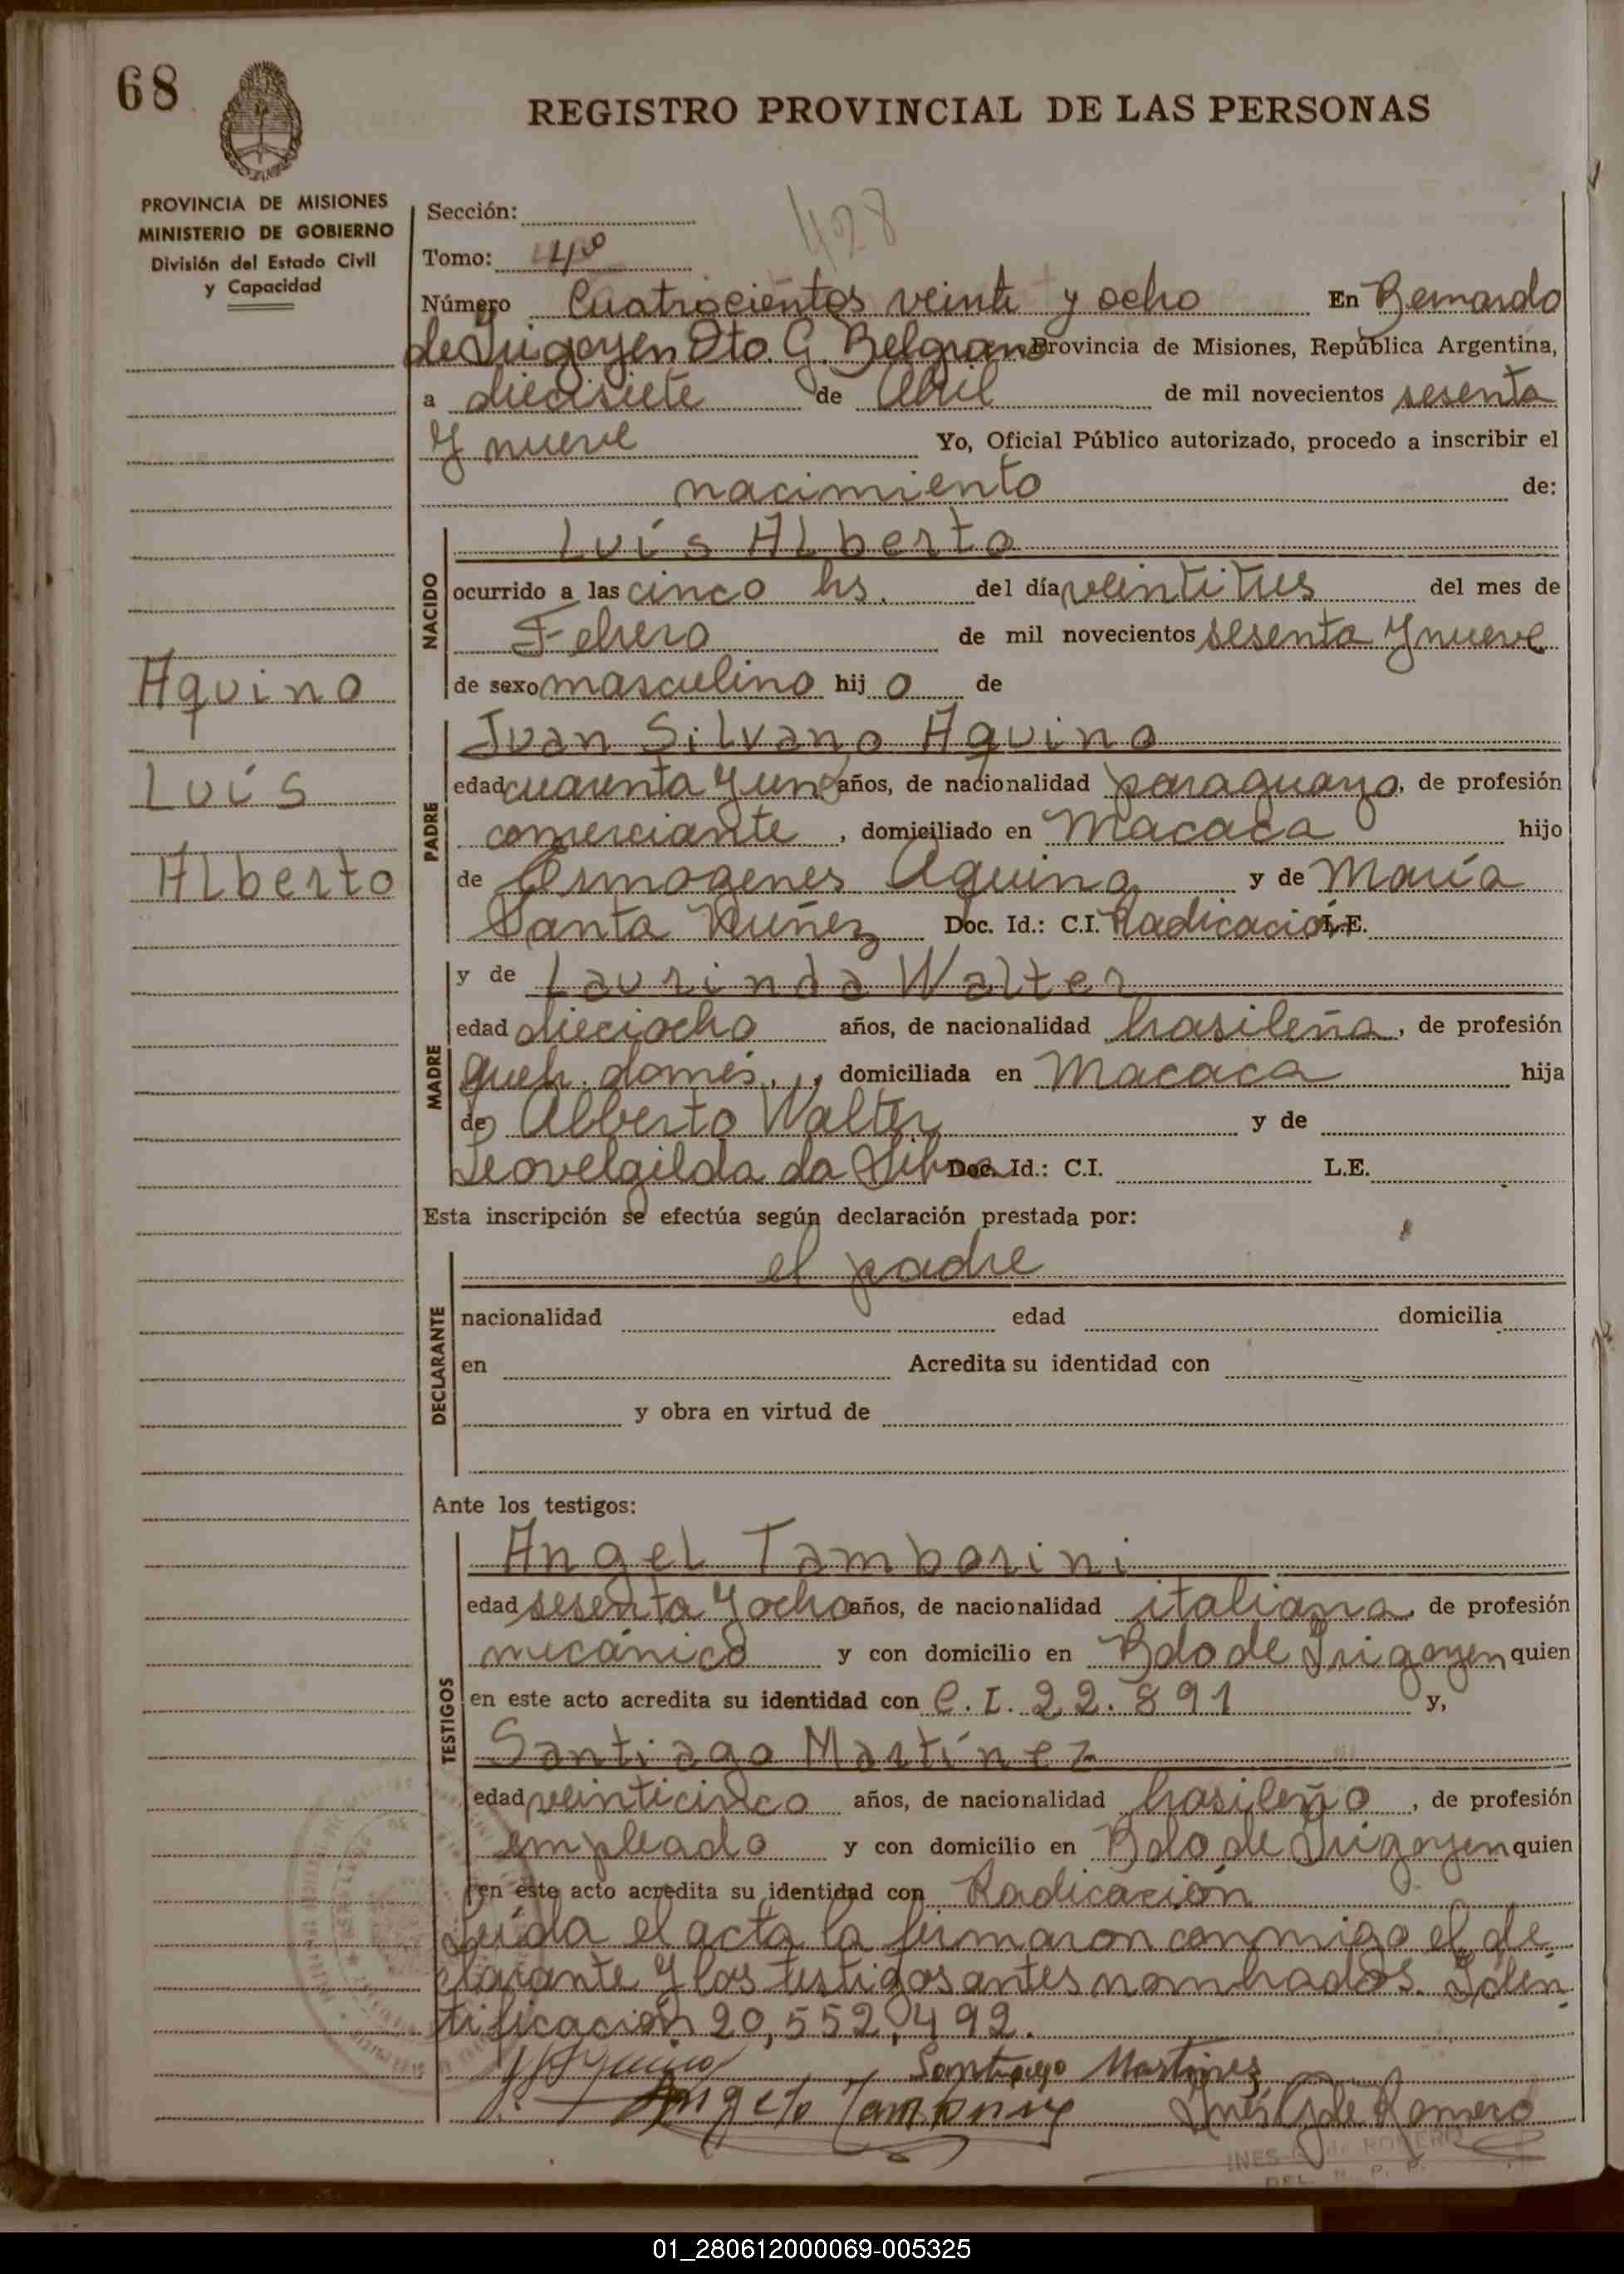 68
REGISTRO PROVINCIAL DE LAS PERSONAS
PROVINCIA DE MISIONES
MINISTERIO DE GOBIERNO
División del Estado Civil
y Capacidad
Sección:
428
Tomo: 4º
Número Cuatrocientos veinte y ocho En Bernardo
de Irigoyen Dto G. Belgrano Provincia de Misiones, República Argentina,
a diecisiete de Abril de mil novecientos sesenta
y nueve Yo, Oficial Público autorizado, procedo a inscribir el
nacimiento de:
Luís ALberto
NACIDO
ocurrido a las cinco hs. del día veintitres del mes de
Febrero de mil novecientos sesenta y nueve
de sexo masculino hij o de
Aquino
Luís
ALberto
Juan SiLvano Aquino
PADRE
edad cuarenta y uno años, de nacionalidad paraguayo, de profesión
comerciante, domiciliado en Macaca hijo
de Ermogenes Aquino y de María
Santa Nuñez Doc. Id.: C.I. Radicación L.E.
y de Laurinda Walter
MADRE
edad dieciocho años, de nacionalidad brasileña, de profesión
queh. domés., domiciliada en Macaca hija
de Alberto Walter y de
Leovelgilda da Silva Doc. Id.: C.I. L.E.
Esta inscripción se efectúa según declaración prestada por:
el padre
DECLARANTE
nacionalidad edad domicilia
en Acredita su identidad con
y obra en virtud de
Ante los testigos:
AngeL Tamborini
TESTIGOS
edad sesenta y ocho años, de nacionalidad italiana, de profesión
mecánico y con domicilio en Bdo de Irigoyen quien
en este acto acredita su identidad con C.I. 22.891 y,
Santiago Martínez
edad veinticinco años, de nacionalidad brasileño, de profesión
empleado y con domicilio en Bdo de Irigoyen quien
en este acto acredita su identidad con Radicación
Leída el acta la firmaron conmigo el de
clarante y los testigos antes nombrados. Iden
tificación 20,552,492.
Santiago Martinez
Angelo Tamborini Inés G de Romero
INES G. de ROMERO
DEL. R. P. P.
01_280612000069-005325